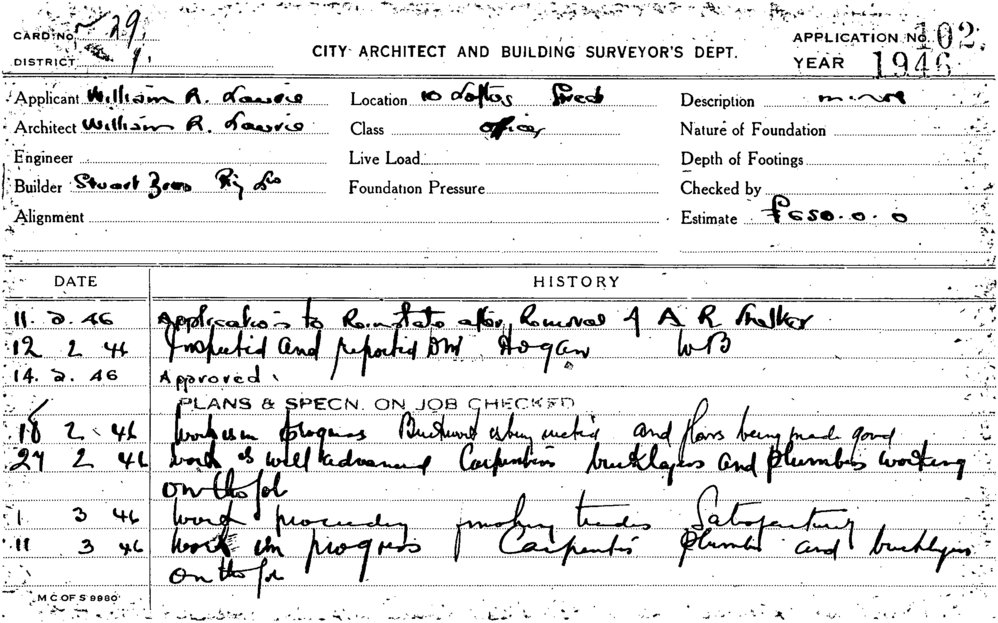 CARD NO. 29
DISTRICT 1.
CITY ARCHITECT AND BUILDING SURVEYOR'S DEPT.
APPLICATION NO. 102.
YEAR 1946
Applicant William R. Lawrie
Location 10 Loftus Street
Description minor
Architect William R. Lawrie
Class offices
Nature of Foundation
Engineer
Live Load
Depth of Footings
Builder Stuart Bros Pty Ltd
Foundation Pressure
Checked by
Alignment
Estimate £650.0.0
DATE HISTORY
11. 2. 46 Application to Reinstate after Removal of A R
12 2 46 Inspected and reported Hogan WB
14. 2. 46 Approved.
PLANS & SPECN. ON JOB CHECKED
18 2 46 Work is in progress Brickwork is being erected and floors being made good
27 2 46 Work is well advanced Carpenters bricklayers and plumbers working
on the job
1 3 46 Work proceeding finishing trades Satisfactory
11 3 46 Work in progress Carpenters Plumbers and bricklayers
on the job
M C OF S 9980